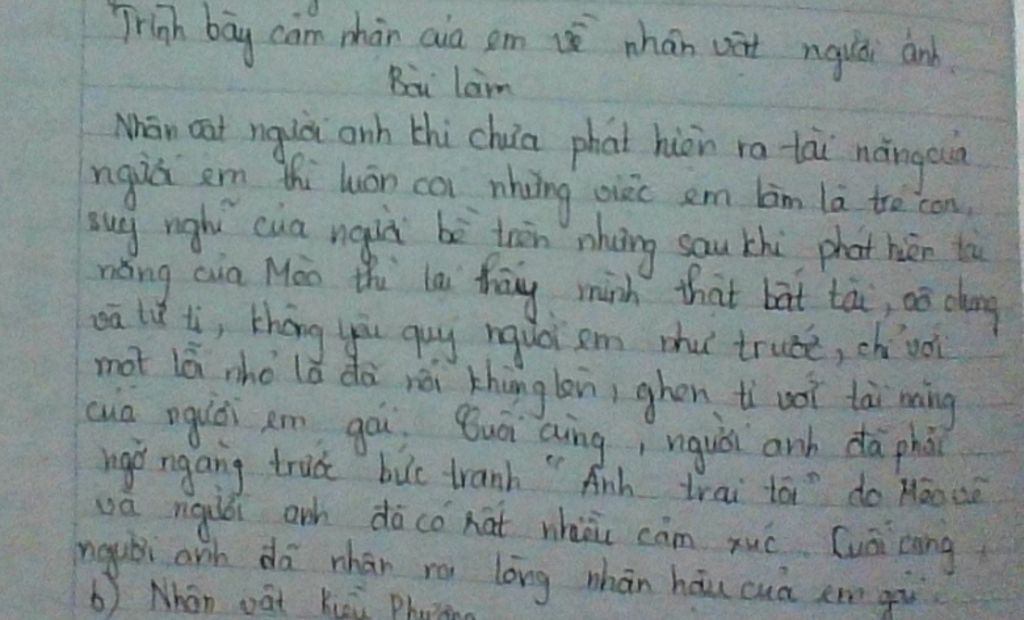 Trình bày cảm nhận của em về nhân vật người anh.
Bài làm
Nhân vật người anh khi chưa phát hiện ra tài năng của
người em thì luôn coi những việc em làm là trẻ con,
suy nghĩ của người bề trên nhưng sau khi phát hiện tài
năng của Mèo thì lại thấy mình thật bất tài, vô dụng
và tự ti, không yêu quý người em như trước, chỉ với
một lỗi nhỏ là đã nổi khùng lên, ghen tị với tài năng
của người em gái. Cuối cùng, người anh đã phải
ngỡ ngàng trước bức tranh "Anh trai tôi" do Mèo vẽ
và người anh đã có rất nhiều cảm xúc. Cuối cùng,
người anh đã nhận ra lòng nhân hậu của em gái.
b) Nhân vật Kiều Phương